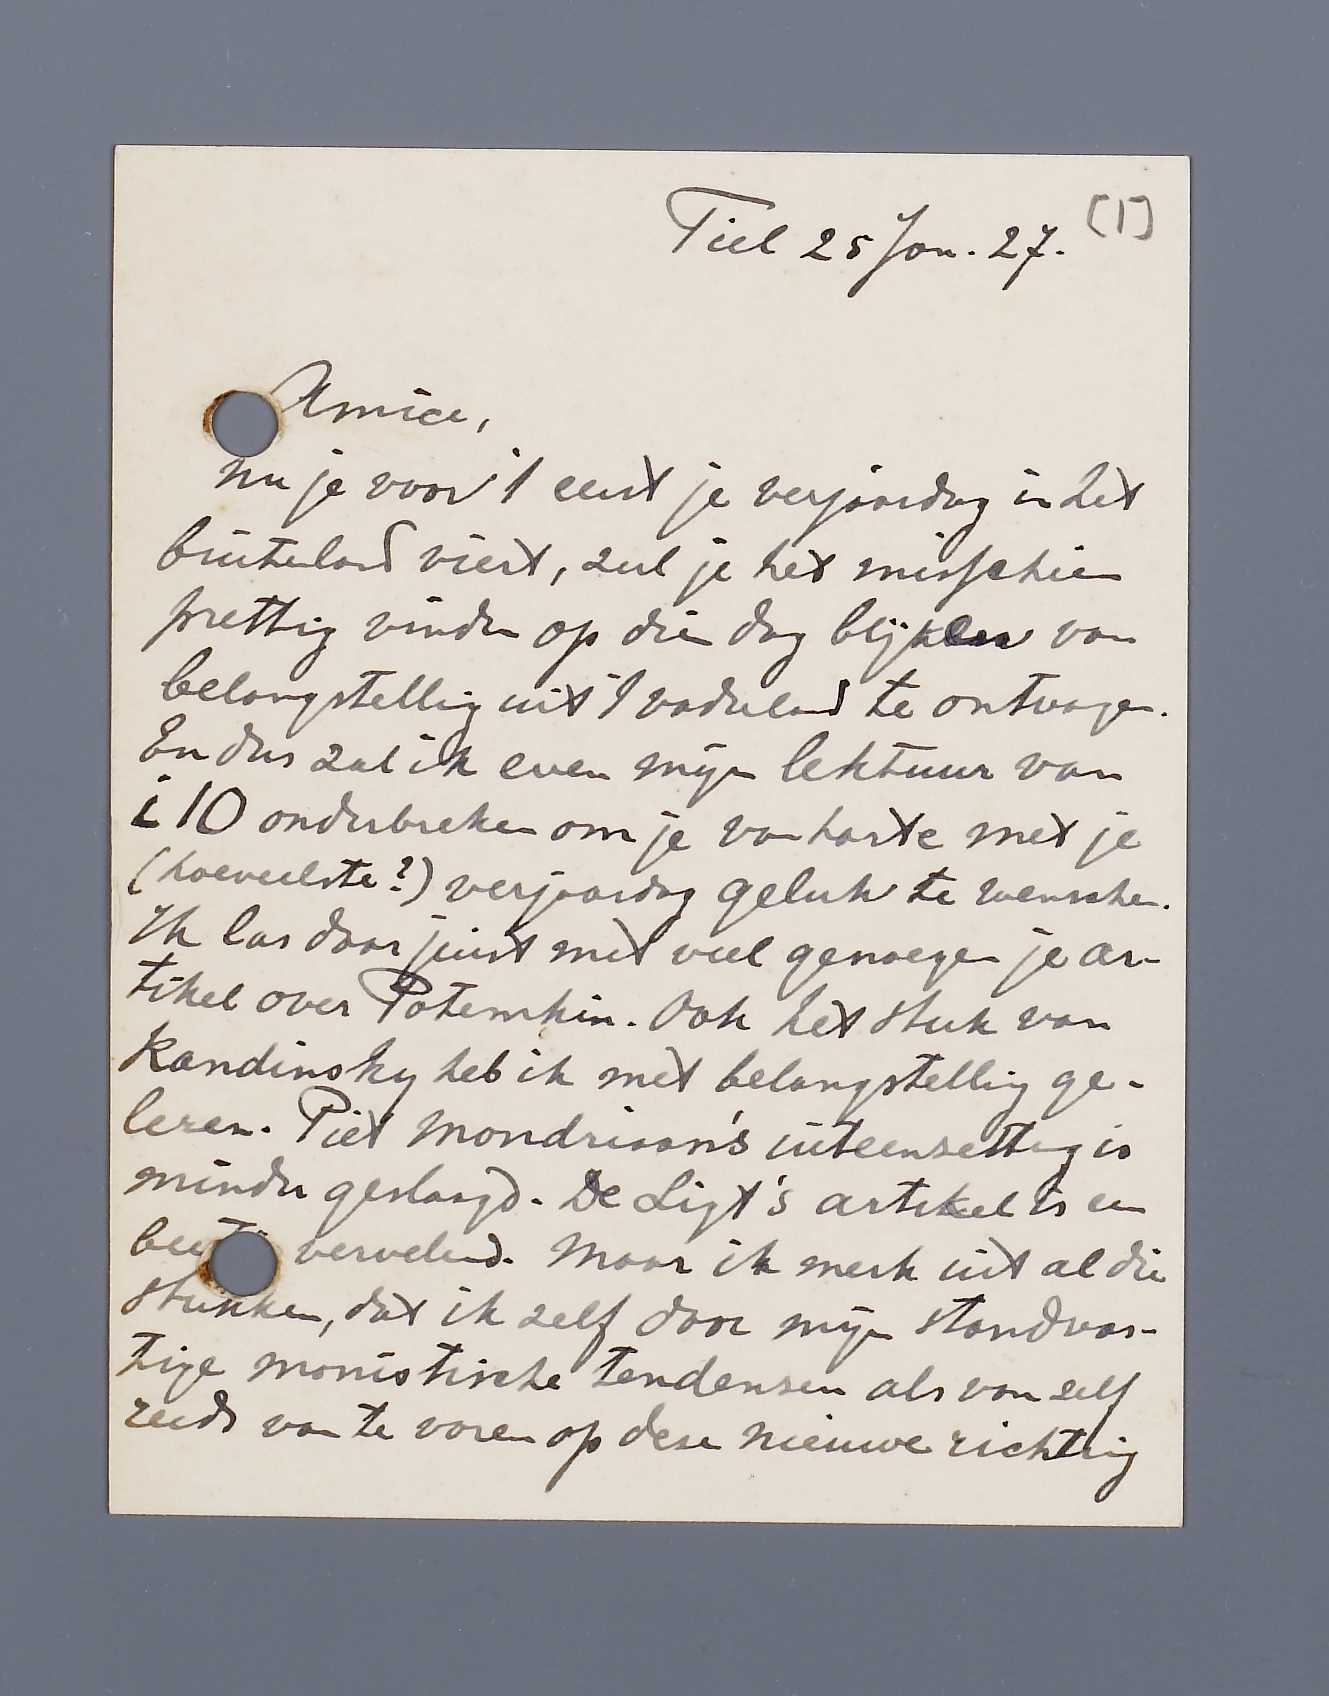 [1]
Tiel 25 Jan. 27.
Amice,
nu je voor 't eerst je verjaardag in het
buitenland viert, zul je het misschien
prettig vinden op dien dag blijken van
belangstelling uit 't vaderland te ontvangen.
En dus zal ik even mijn lektuur van
i 10 onderbreken om je van harte met je
(hoeveelste?) verjaardag geluk te wenschen.
Ik las daar juist met veel genoegen je ar-
tikel over Potemkin. Ook het stuk van
Kandinsky heb ik met belangstelling ge-
lezen. Piet Mondriaan's uiteenzetting is
minder geslaagd. De Ligt's artikel is een
beetje vervelend. Maar ik merk uit al die
stukken, dat ik zelf door mijn standvas-
tige monistische tendenzen als van zelf
reeds van te voren op deze nieuwe richting